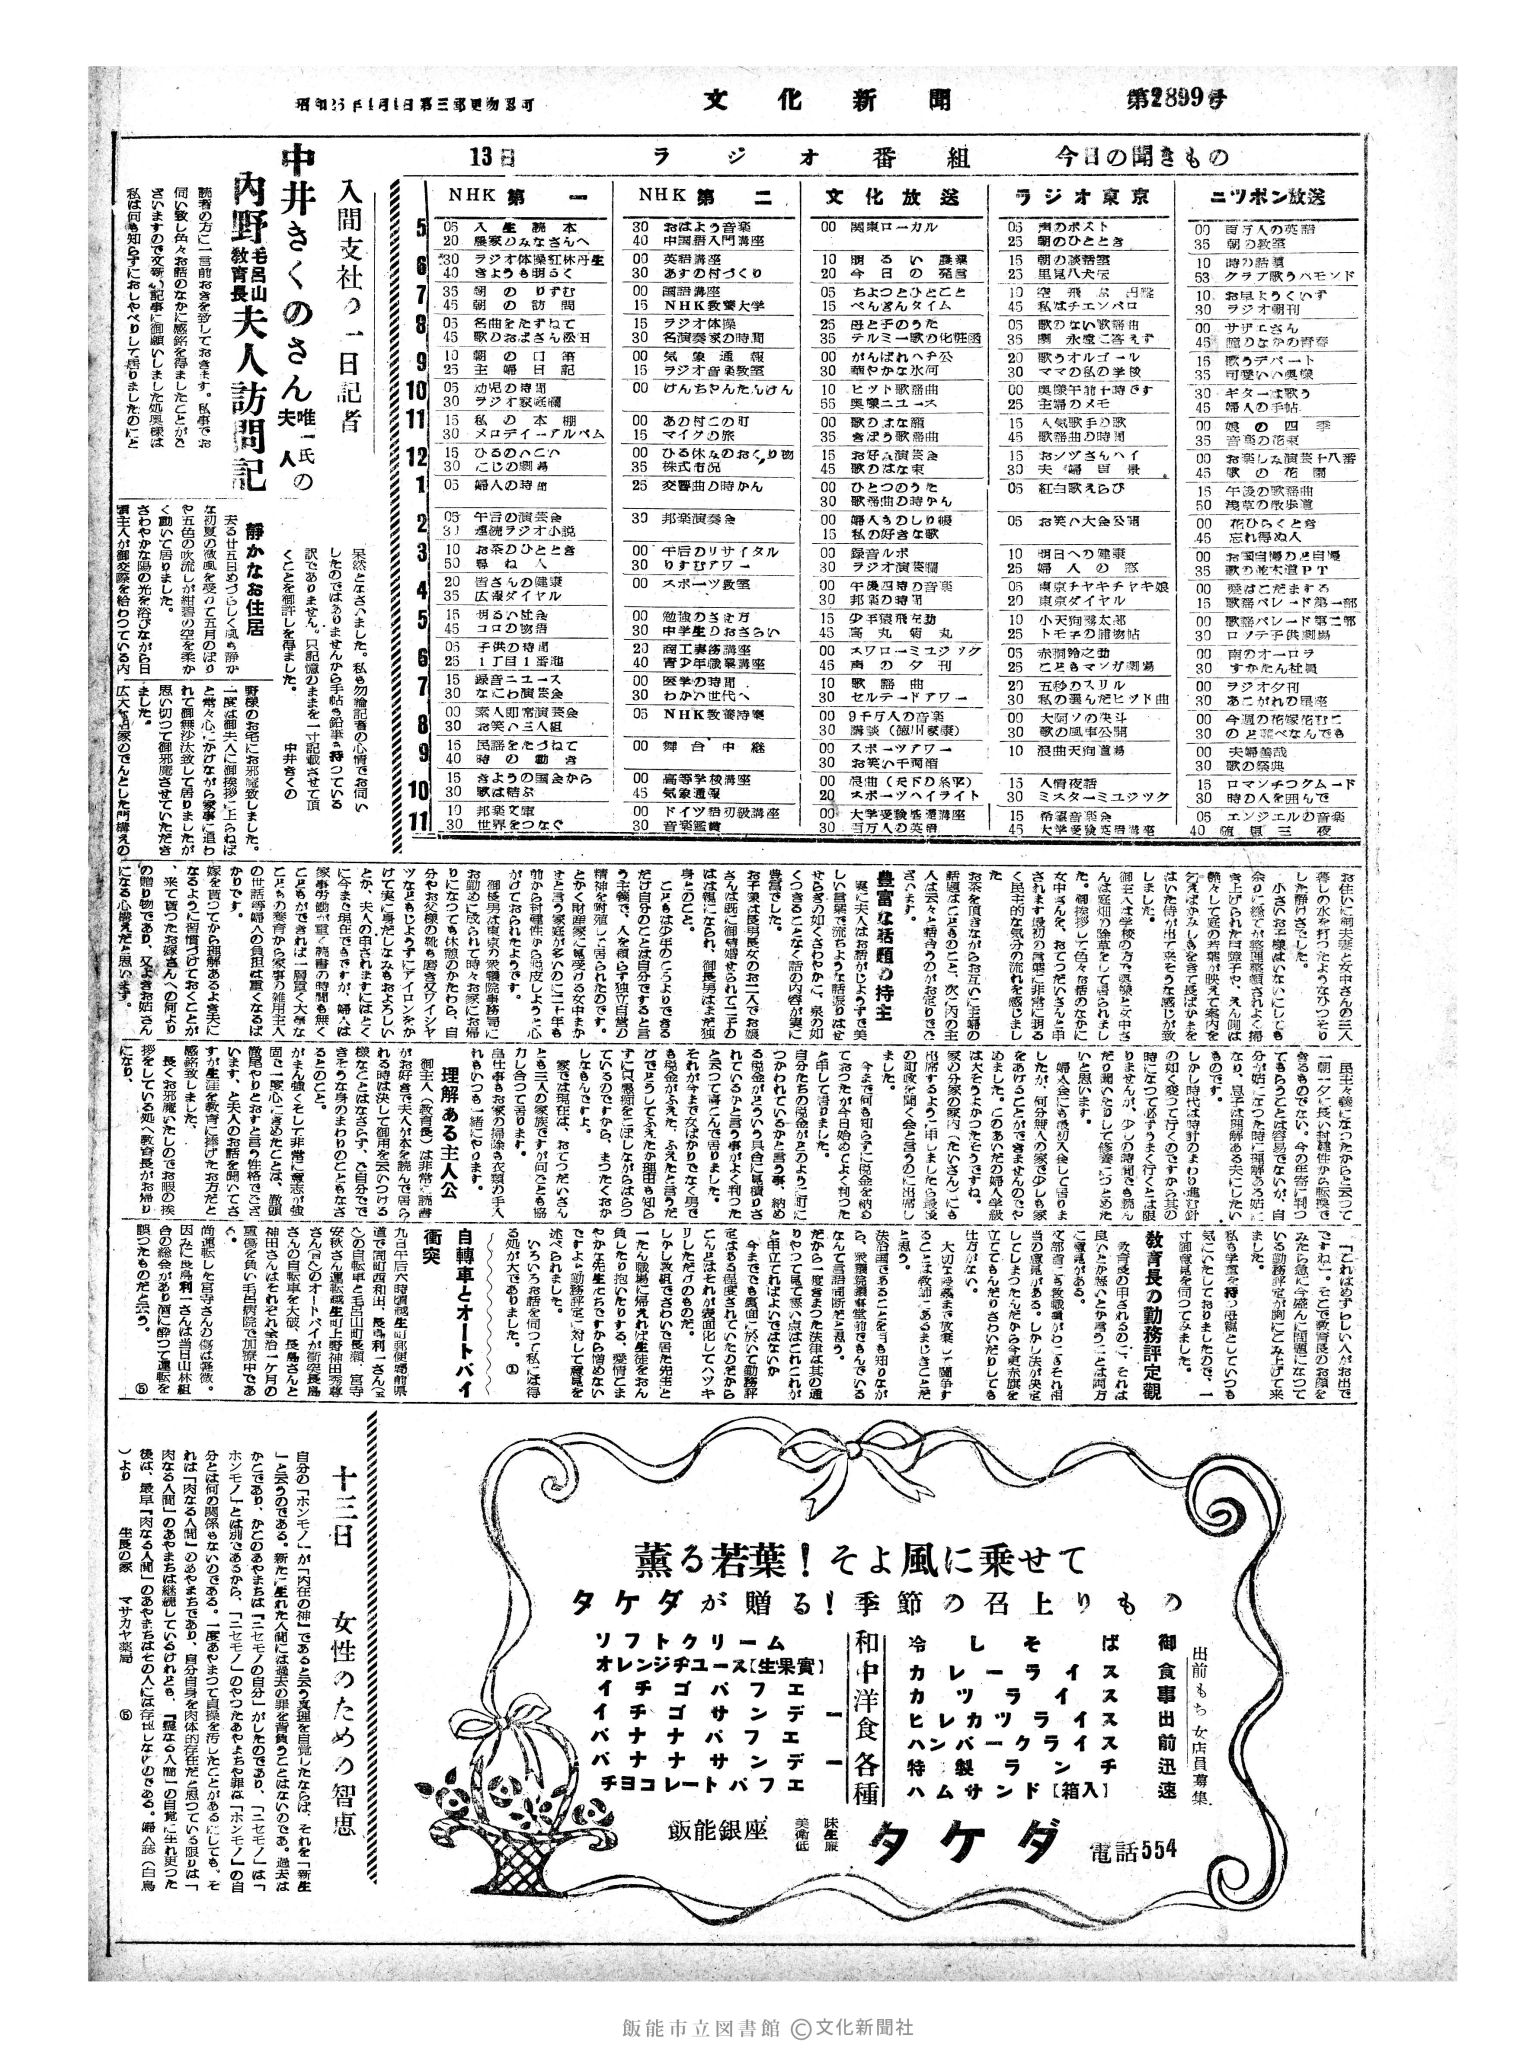 昭和25年4月1日第三郵便物認可
文化新聞
第2899号
13日 ラジオ番組 今日の聞きもの
NHK 第一
5
05 人生読本
20 農家のみなさんへ
6
40 きようも明るく
7
35 朝のりずむ
45 朝の訪問
8
05 名曲をたずねて
45 歌のおばさん松田
9
10 朝の口笛
25 主婦日記
10
05 幼児の時間
30 ラジオ家庭欄
11
15 私の本棚
30 メロデイーアルバム
12
15 ひるのいこい
30 にじの劇場
1
05 婦人の時間
2
05 午后の演芸会
連続ラジオ小説
3
10 お茶のひととき
50 尋ね人
4
20 皆さんの健康
35 広報ダイヤル
5
15 明るい社会
45 コロの物語
6
05 子供の時間
25 1丁目1番地
7
15 録音ニユース
30 なにわ演芸会
8
00 素人即常演芸会
30 お笑い三人組
9
15 民謡をたづねて
40 時の動き
10
15 きようの国会から
30 歌は結ぶ
11
10 邦楽文庫
30 世界をつなぐ
NHK 第二
30 おはよう音楽
40 中国語入門講座
00 英語講座
30 あすの村づくり
00 国語講座
15 NHK教養大学
15 ラジオ体操
30 名演奏家の時間
00 気象通報
15 ラジオ音楽教室
00 けんちやんたんけん
00 あの村この町
15 マイクの旅
00 ひる休みのおくり物
35 株式市況
25 交響曲の時かん
30 邦楽演奏会
00 午后のリサイタル
30 りすむアワー
00 スポーツ教室
00 勉強のさせ方
30 中学生のおさらい
20 商工実務講座
40 青少年職業講座
00 医学の時間
30 わかい世代へ
05 NHK教養特集
00 舞台中継
00 高等学校講座
45 気象通報
00 ドイツ語初級講座
30 音楽鑑賞
文化放送
00 関東ローカル
10 明るい農業
20 今日の発言
05 ちよつとひとこと
15 ぺんぎんタイム
25 母と子のうた
35 テルミー歌の化粧函
00 がんばれベチ公
30 華やかな氷河
10 ヒツト歌謡曲
55 奥様ニユース
00 歌のはな籠
35 きぼう歌謡曲
15 お好み演芸会
45 歌のはな束
00 ひとつのうた
30 歌謡曲の時かん
00 婦人ものしり帳
15 私の好きな歌
00 録音ルポ
30 ラジオ演芸欄
00 午後四時の音楽
30 邦楽の時間
15 少年猿飛佐助
45 高丸菊丸
00 スワローミユジツク
45 声の夕刊
10 歌謡曲
30 セルテードアワー
00 9千万人の音楽
30 講談（徳川家康）
00 スポーツアワー
30 お笑い千両箱
00 浪曲（天下の糸平）
20 スポーツハイライト
00 大学受験感還講座
30 百万人の英語
ラジオ東京
05 声のポスト
25 朝のひととき
05 朝の談話室
25 里見八犬伝
10 空飛ぶ円盤
45 私はチエンバロ
05 歌のない歌謡曲
35 劇 永遠に答えず
20 歌うオルゴール
30 ママの私の学校
00 奥様午前十時です
25 主婦のメモ
15 人気歌手の歌
45 歌謡曲の時間
15 お シヅさんヘイ
30 夫婦百景
05 紅白歌えらび
05 お笑い大会公開
10 明日への健康
25 婦人の窓
05 東京チヤキチヤキ娘
20 東京ダイヤル
10 小天狗鶴太郎
25 トモ子の捕物帖
05 赤胴鈴之助
25 こどもマンガ劇場
20 五秒のスリル
30 私の選んだヒツト曲
00 大阿ソの決斗
30 歌の風車公開
10 浪曲天狗道場
15 人情夜話
30 ミスターミユジツク
15 希望音楽会
45 大学受験英語講座
ニツポン放送
00 百万人の英語
35 朝の教室
10 時の話題
53 クラブ歌うハモンド
10 お早ようくいず
30 ラジオ朝刊
00 サザエさん
45 瞳のなかの青春
15 歌うデパート
35 可愛いい奥様
30 ギターは歌う
45 婦人の手帖
00 娘の四季
35 音楽の花束
00 お楽しみ演芸十八番
45 歌の花園
15 午後の歌謡曲
50 浅草の散歩道
00 花ひらくとき
45 忘れ得ぬ人
00 お国自慢のど自慢
35 歌の並木道PT
00 愛はこだまする
15 歌謡パレード第一部
00 歌謡パレード第二部
30 ロツテ子供劇場
00 南のオーロラ
30 すかたん社員
00 ラジオ夕刊
30 あこがれの星座
00 今週の花嫁花むこ
30 のど競べなんでも
00 夫婦善哉
30 歌の祭典
15 ロマンチツクムード
30 時の人を囲んで
05 エンジエルの音楽
40 随見三夜
入間支社の一日記者
中井きくのさん 唯一氏の夫人
内野 毛呂山教育長 夫人訪問記
読者の方に一言前おきを致しておきます。私事でお
伺い致し色々お話のなかに感銘を得ましたことがご
ざいますので文新の記事に御願いしました処奥様は
私は何も知らずにおしやべりして居りましたのにと
呆然となさいました。私も勿論記者の心情でお伺い
したのではありませんから手帖も鉛筆も持つている
訳でありません。只記憶のままを一寸記載させて頂
くことを御許しを得ました。 中井きくの
静かなお住居
去る廿五日めづらしく風も静か
な初夏の微風を受めて五月のぼり
や五色の吹流しが紺碧の空を柔か
く動いて居りました。
さわやかな陽の光を浴びながら日
頃主人が御交際を給わつている内
野様のお宅にお邪魔致しました。
一度は御夫人に御挨拶に上らねば
と常々心にかけながら家事に追わ
れて御無沙汰致して居りましたが
思い切つて御邪魔させていただき
ました。
広大な旧家のでんとした門構えの
お住いに御夫妻と女中さんの三人
暮しの水を打つたようなひつそり
した静けさでした。
小さいお子様はいないにしても
余りに総てが整理整頓されよく掃
き上げられた白障子や、えん側は
艶々して庭の若葉が映えて案内を
乞えばかみしもをきて長ばかまを
はいた侍が出て来そうな感じが致
しました。
御主人は学校の方で奥様と女中さ
んは庭畑の除草をして居られまし
た。御挨拶して色々お話のなかに
女中さんを、おてつだいさんと申
されます最初の言葉に非常に明る
く民主的な気分の流れを感じまし
お茶を頂きながらお互いに主婦の
話題はこどものこと、次に内の主
人は云々と話合うのがお定りでご
ざいます。
豊富な話題の持主
実に夫人はお話がじようずで美
しい言葉で流ちような話振りはせ
せらぎの如くさわやかに、泉の如
くつきることなく話の内容が実に
豊富でした。
お子様は長男長女のお二人でお嬢
さんは既に御結婚せられて二子の
はは親になられ、御長男はまだ独
身とのこと。
こどもは少年のころよりできる
だけ自分のことは自分ですると言
う主義で、人を頼らず独立自営の
精神を付殖して居られたのです。
とかく財産家に見受ける女中まか
せと言う家庭が多いのに二十年も
前から封建性から脱皮しようと心
がけておられたようです。
御長男は東京の衆議院事務局に
お勤めに成られて時々お家にお帰
りになつても休憩のかたわら、自
分やお父様の靴も磨き又ワイシヤ
ツなどもじようずにアイロンをか
けて実に身だしなみもおよろしい
とか、夫人の申されますにはとく
に今まで現在でもですが、婦人は
家事労働が重く読書の時間も無く
こどもができれば一層重く大変な
こどもの養育から家事の雑用主人
の世話等婦人の負担は重くなるば
かりです。
嫁を貰つてから理解あるよき夫に
なるように習慣づけておくことが
、来て貰つたお嫁さんへの何より
の贈り物であり、又よきお姑さん
になる心構えだと思います。
民主主義になつたからと云つて
一朝一夕に長い封建性から転換で
きるものでない。今の年寄に判つ
てもらうことは容易でないが、自
分が姑になつた時に理解ある姑に
なり、息子は理解ある夫にしたい
ものです。
しかし時代は時計のまわり進む針
の如く変つて行くのですから其の
時になつて必ずうまく行くとは限
りませんが、少しの時間でも読ん
だり聞いたりして修養につとめた
いと思います。
婦人会にも最初入会して居りま
したが、何分無人の家で少しも家
をあけることができませんのでや
めました。このあいだの婦人学級
は大そうよかつたそうですね。
家の分家の家内（たいさん）にも
出席するように申しましたら最後
の町政を聞く会と言うのに出席し
ました。
今まで何も知らずに税金を納め
ておつたが今日始めてよく判つた
と申して居りました。
自分たちの税金がどのように町に
つかわれているかと言う事、納め
る税金がどういう具合に見積りさ
れているかと言う事がよく判つた
と云つて喜こんで居りました。
それが今まで女ばかりでなく男で
も税金がふえた、ふえたと言うだ
けでどうしてふえたか理由も知ら
ずに只愚痴をこぼしながらはらつ
ているのですから、まつたくおか
しなもんですよ。
家では現在は、おてつだいさん
とも三人の家族ですが何でとも協
力し合つて居ります。
畠仕事もお家の掃除も衣類の手入
れもいつも一緒にやります。
理解ある主人公
御主人（教育長）は非常に読書
がお好きで夫人が本を読んで居ら
れる時は決して御用を云いつける
様なことはなさらず、ご自分でで
きそうな身のまわりのこともなさ
るとのこと。
がまん強くそして非常に意志が強
固で一度心にきめたことは、徹頭
徹尾やりとおすと言う性格でござ
います、と夫人のお話を聞いてさ
すが生涯を教育に捧げたお方だと
感銘致しました。
長くお邪魔いたしのでお暇の挨
拶をしている処へ教育長がお帰り
になり、
「これはめずらしい人がお出で
ですね」。そこで教育長のお顔を
みたら急に今盛んに問題になつて
いる勤務評定が胸にこみ上げて来
ました。
私も学童を持つ母親としていつも
気にいたしておりましたので、一
寸御意見を伺つてみました。
教育長の勤務評定観
教育長の申されるのに、それは
良いとか悪いとか言うことは両方
に意見がある。
文部省にも教職員がわにもそれ相
当の意見がある。しかし法が決定
してしまつたんだから今更赤旗を
立ててもんだりさわいだりしても
仕方がない。
大切な授業まで放棄して闘争す
ることは教師にあるまじきことだ
と思う。
法治国であることを百も知りなが
ら、衆議発議事堂前でもんでいる
なんて言語同断だと思う。
だから一度きまつた法律は其の通
りやつて見て悪い点はこれこれが
と申立てればよいではないか
今まででも裏面に於いて勤務評
定はある程度されていたのだから
こんどはそれが表面化してハツキ
リしただけのものだ。
しかし教組でさわいで居た先生と
一たん職場に帰えれば生徒をおん
負したり抱いたりする、愛情こま
やかな先生たちですから憎めない
ですよと勤務評定に対して意見を
述べられました。
いろいろお話を伺つて私には得
る処が大でありました。 ①
自転車とオートバイ衝突
九日午后六時頃越生町郵便局前県
道で同町西和田、長島利一さん（五
七）の自転車と毛呂山町長瀬、宮寺
安秋さん運転越生町上野神田秀尊
さんのオートバイが衝突長島
さんの自転車を大破、長島さんと
神田さんはそれぞれ全治一ケ月の
重傷を負い毛呂病院で加療中であ
る。
尚運転した宮寺さんの傷は軽微。
因みに長島利一さんは当日山林組
合の総会があり酒に酔つて運転を
誤つたものだと云う。 ⑤
十三日 女性のための智恵
自分の「ホンモノ」が「内在の神」であると云う真理を自覚したならば、それを「新生
」と云うのである。新たに生れた人間には過去の罪を背負うことはないのであ。過去は
かこであり、かこのあやまちは「ニセモノの自分」がしたのであり、「ニセモノ」は「
ホンモノ」とは別であるから、「ニセモノ」のやつたあやまちや罪は「ホンモノ」の自
分とは何の関係もないのである。一度あやまつて貞操を汚したことがあるにしても、そ
れは「肉なる人間」のあやまちであり、自分自身を肉体的存在だと思つている限りは「
肉なる人間」のあやまちは継続しているけれども、『霊なる人間』の自覚に生れ更つた
後は、最早『肉なる人間』のあやまちはその人には存在しないのである。婦人誌（白鳥
）より 生長の家 マサカヤ薬局 ⑥
薫る若葉！そよ風に乗せて
タケダが贈る！季節の召上りもの
出前もち 女店員募集
御食事出前迅速
冷しそば
カレーライス
カツライス
ヒレカツライス
ハンバークライス
特製ランチ
ハムサンド【箱入】
和中洋食各種
ソフトクリーム
オレンジヂユース【生果實】
イチゴパフエ
イチゴサンデー
バナナパフエ
バナナサンデー
チヨコレートパフエ
飯能銀座
美衛低
味生廉
タケダ
電話554
飯能市立図書館 ©文化新聞社